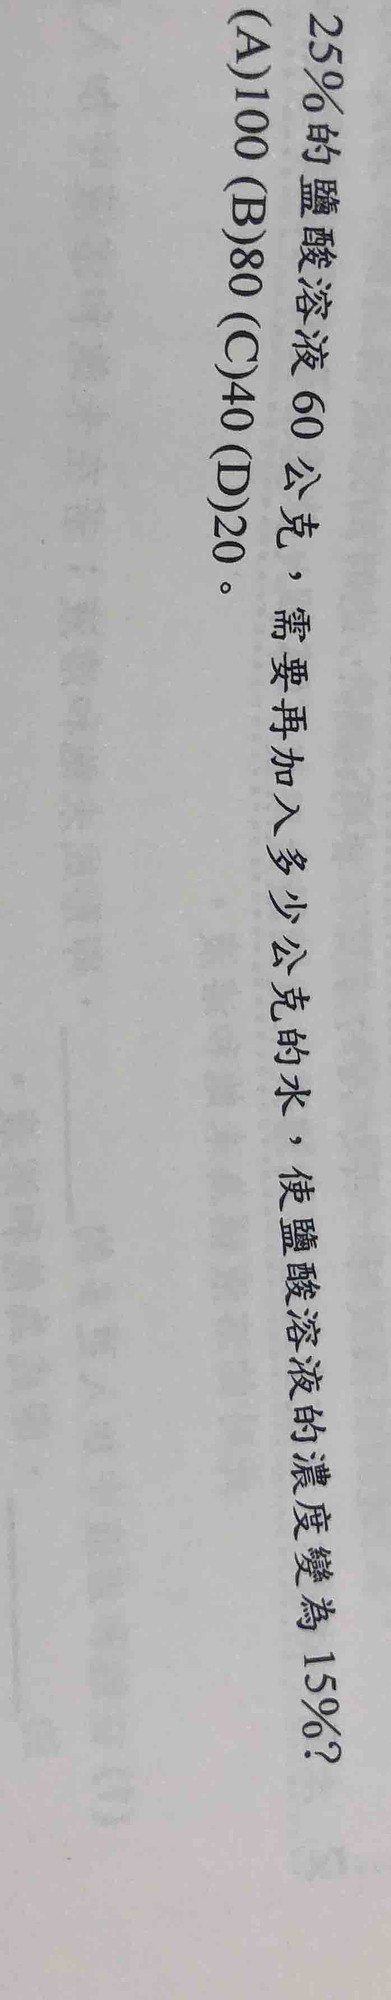 25%的鹽酸溶液 60 公克，需要再加入多少公克的水，使鹽酸溶液的濃度變為 15%?
(A)100 (B)80 (C)40 (D)20。